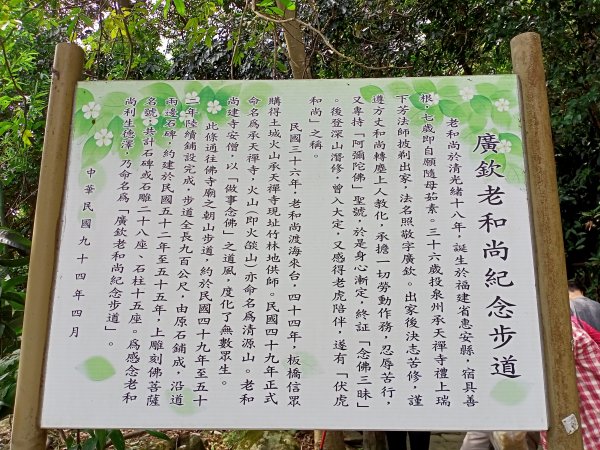 廣欽老和尚紀念步道
老和尚於清光緒十八年，誕生於福建省惠安縣，宿具善
根，七歲即自願隨母茹素。三十六歲投泉州承天禪寺禮上瑞
下芳法師披剃出家，法名照敬字廣欽。出家後決志苦修，謹
遵方丈和尚轉塵上人教化，承擔一切勞動作務，忍辱苦行，
又專持「阿彌陀佛」聖號，於是身心漸定，終証「念佛三昧」
。後登深山潛修，曾入大定，又感得老虎陪伴，遂有「伏虎
和尚」之稱。
民國三十六年，老和尚渡海來台，四十四年，板橋信眾
購得土城火山承天禪寺現址竹林地供師。民國四十九年正式
命名為承天禪寺，火山（即火燄山）亦命名為清源山。老和
尚建寺安僧，以「做事念佛」之道風，度化了無數眾生。
此條通往佛寺廟之朝山步道，約於民國四十九年至五十
二年陸續鋪設完成，步道全長九百公尺，由原石鋪成，沿道
兩邊石碑，約建於民國五十二年至五十五年，上雕刻佛菩薩
名號；共計石碑或石雕二十八座、石柱十五座。為感念老和
尚利生德澤，乃命名為「廣欽老和尚紀念步道」。
中華民國九十四年四月